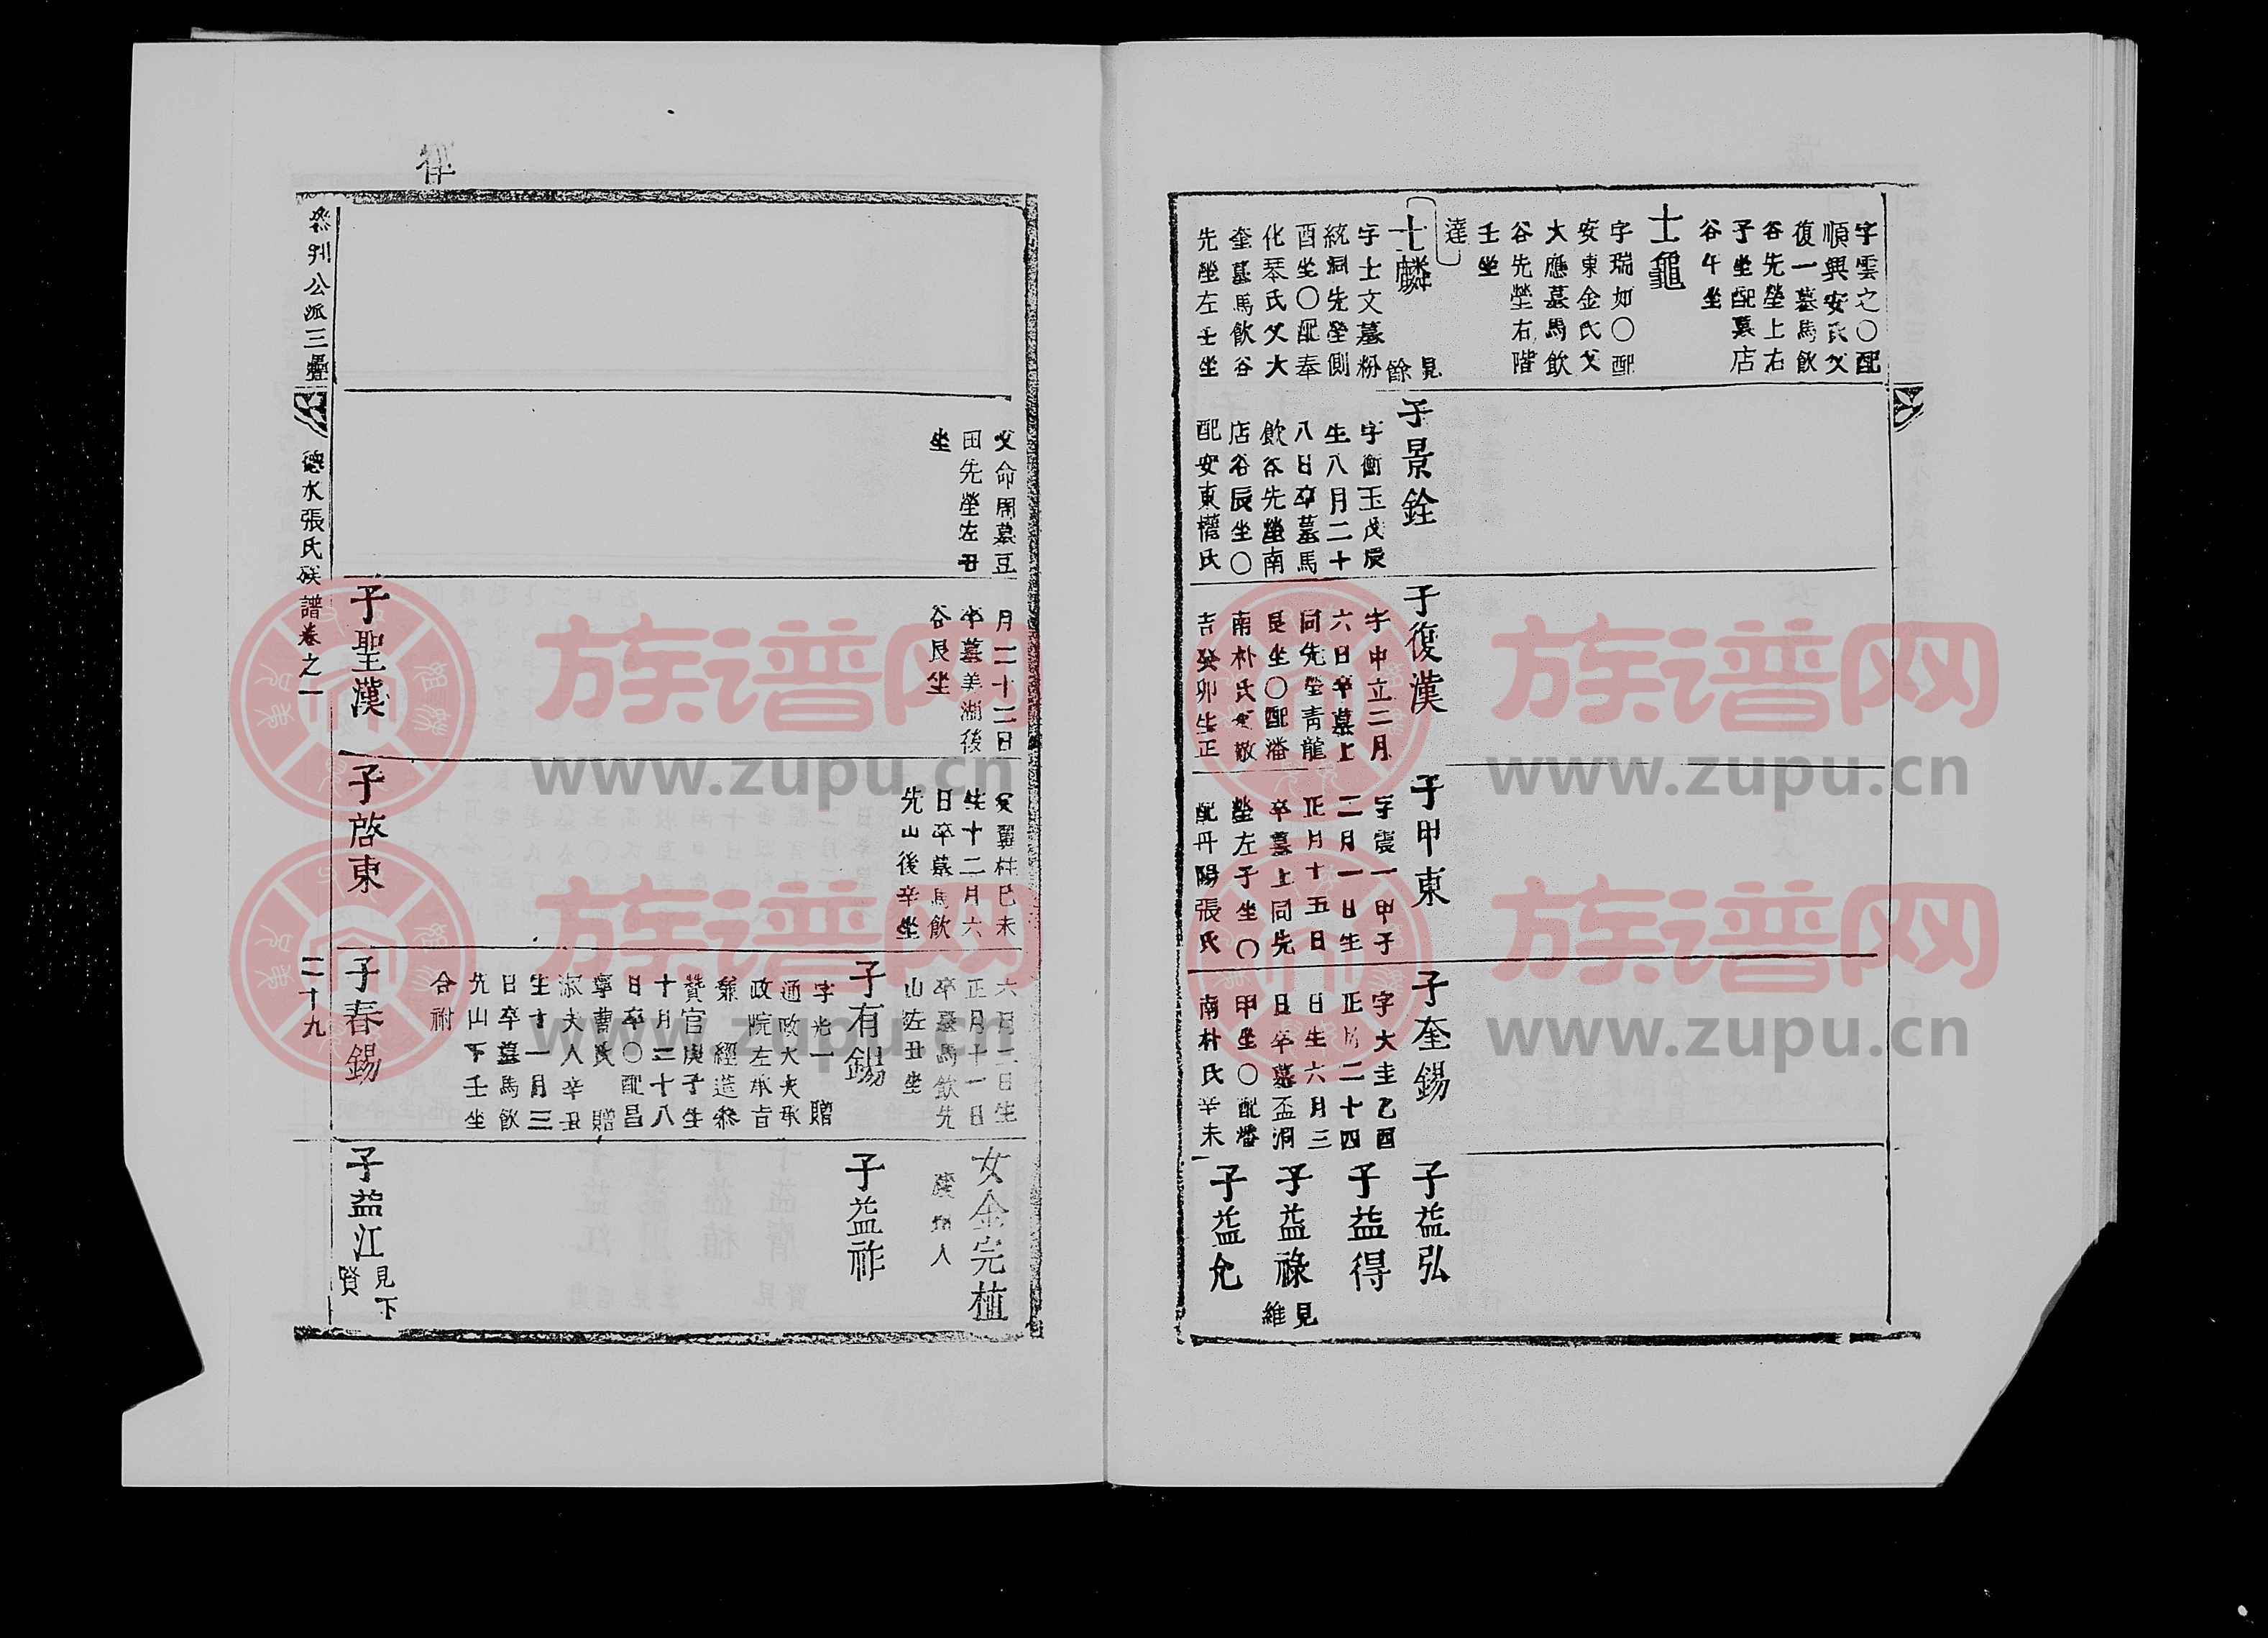 字雲之〇配
順興安氏父
復一墓馬飮
谷先塋上右
子坐配墓店
谷午坐
士龜
字瑞如〇配
安東金氏父
大應墓馬飮
谷先塋右階
壬坐
達
士麟
見
餘
字士文墓粉
統洞先塋側
酉坐〇配奉
化琴氏父大
奎墓馬飮谷
先塋左壬坐
子景銓
字衡玉戊辰
生八月二十
八日卒墓馬
飮谷先塋南
店谷辰坐〇
配安東權氏
子復漢
字中立二月
六日卒墓上
同先塋靑龍
艮坐〇配潘
南朴氏父敬
吉癸卯生正
子甲東
字震一甲子
二月一日生
正月十五日
卒墓上同先
塋左子坐〇
配丹陽張氏
子奎錫
字大圭乙酉
正月二十四
日生六月三
日卒墓盃洞
甲坐〇配潘
南朴氏辛未
子益弘
子益得
子益祿
見
維
子益允
父命周墓豆
田先塋左丑
坐
月二十二日
卒墓美湖後
谷艮坐
父翼柱己未
生十二月六
日卒墓馬飮
先山後辛坐
六月二日生
正月十一日
卒墓馬飮先
山左丑坐
子有錫
字光一 贈
通政大夫承
政院左承旨
兼 經筵參
贊官庚子生
十月二十八
日卒〇配昌
寧曹氏 贈
淑夫人辛丑
生十一月三
日卒墓馬飮
先山下壬坐
合祔
女金完植
人
子益祚
子聖漢
子啓東
子春錫
子益江
見下
賢
參判公派三疊
德水張氏族譜卷之一
二十九
族谱网
www.zupu.cn
族谱网
www.zupu.cn
族谱网
www.zupu.cn
族谱网
www.zupu.cn